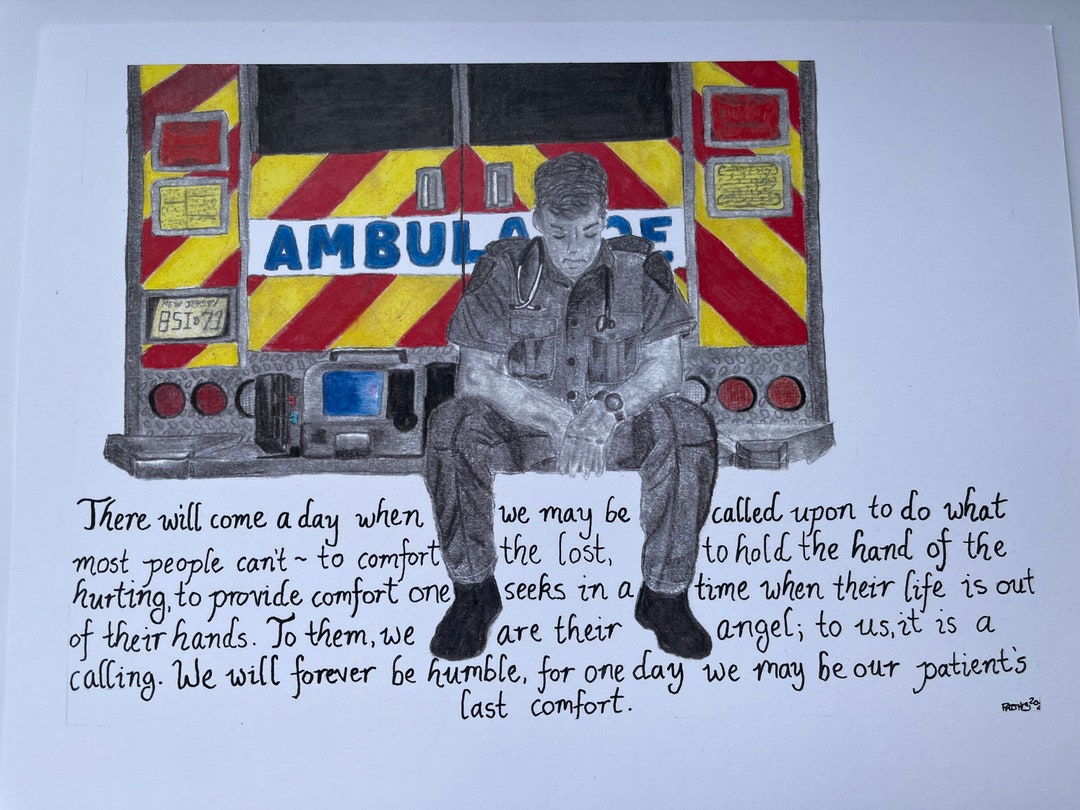 AMBULANCE
NEW JERSEY
BSI 71
There will come a day when we may be called upon to do what
most people can't ~ to comfort the lost, to hold the hand of the
hurting, to provide comfort one seeks in a time when their life is out
of their hands. To them, we are their angel; to us, it is a
calling. We will forever be humble, for one day we may be our patient's
last comfort.